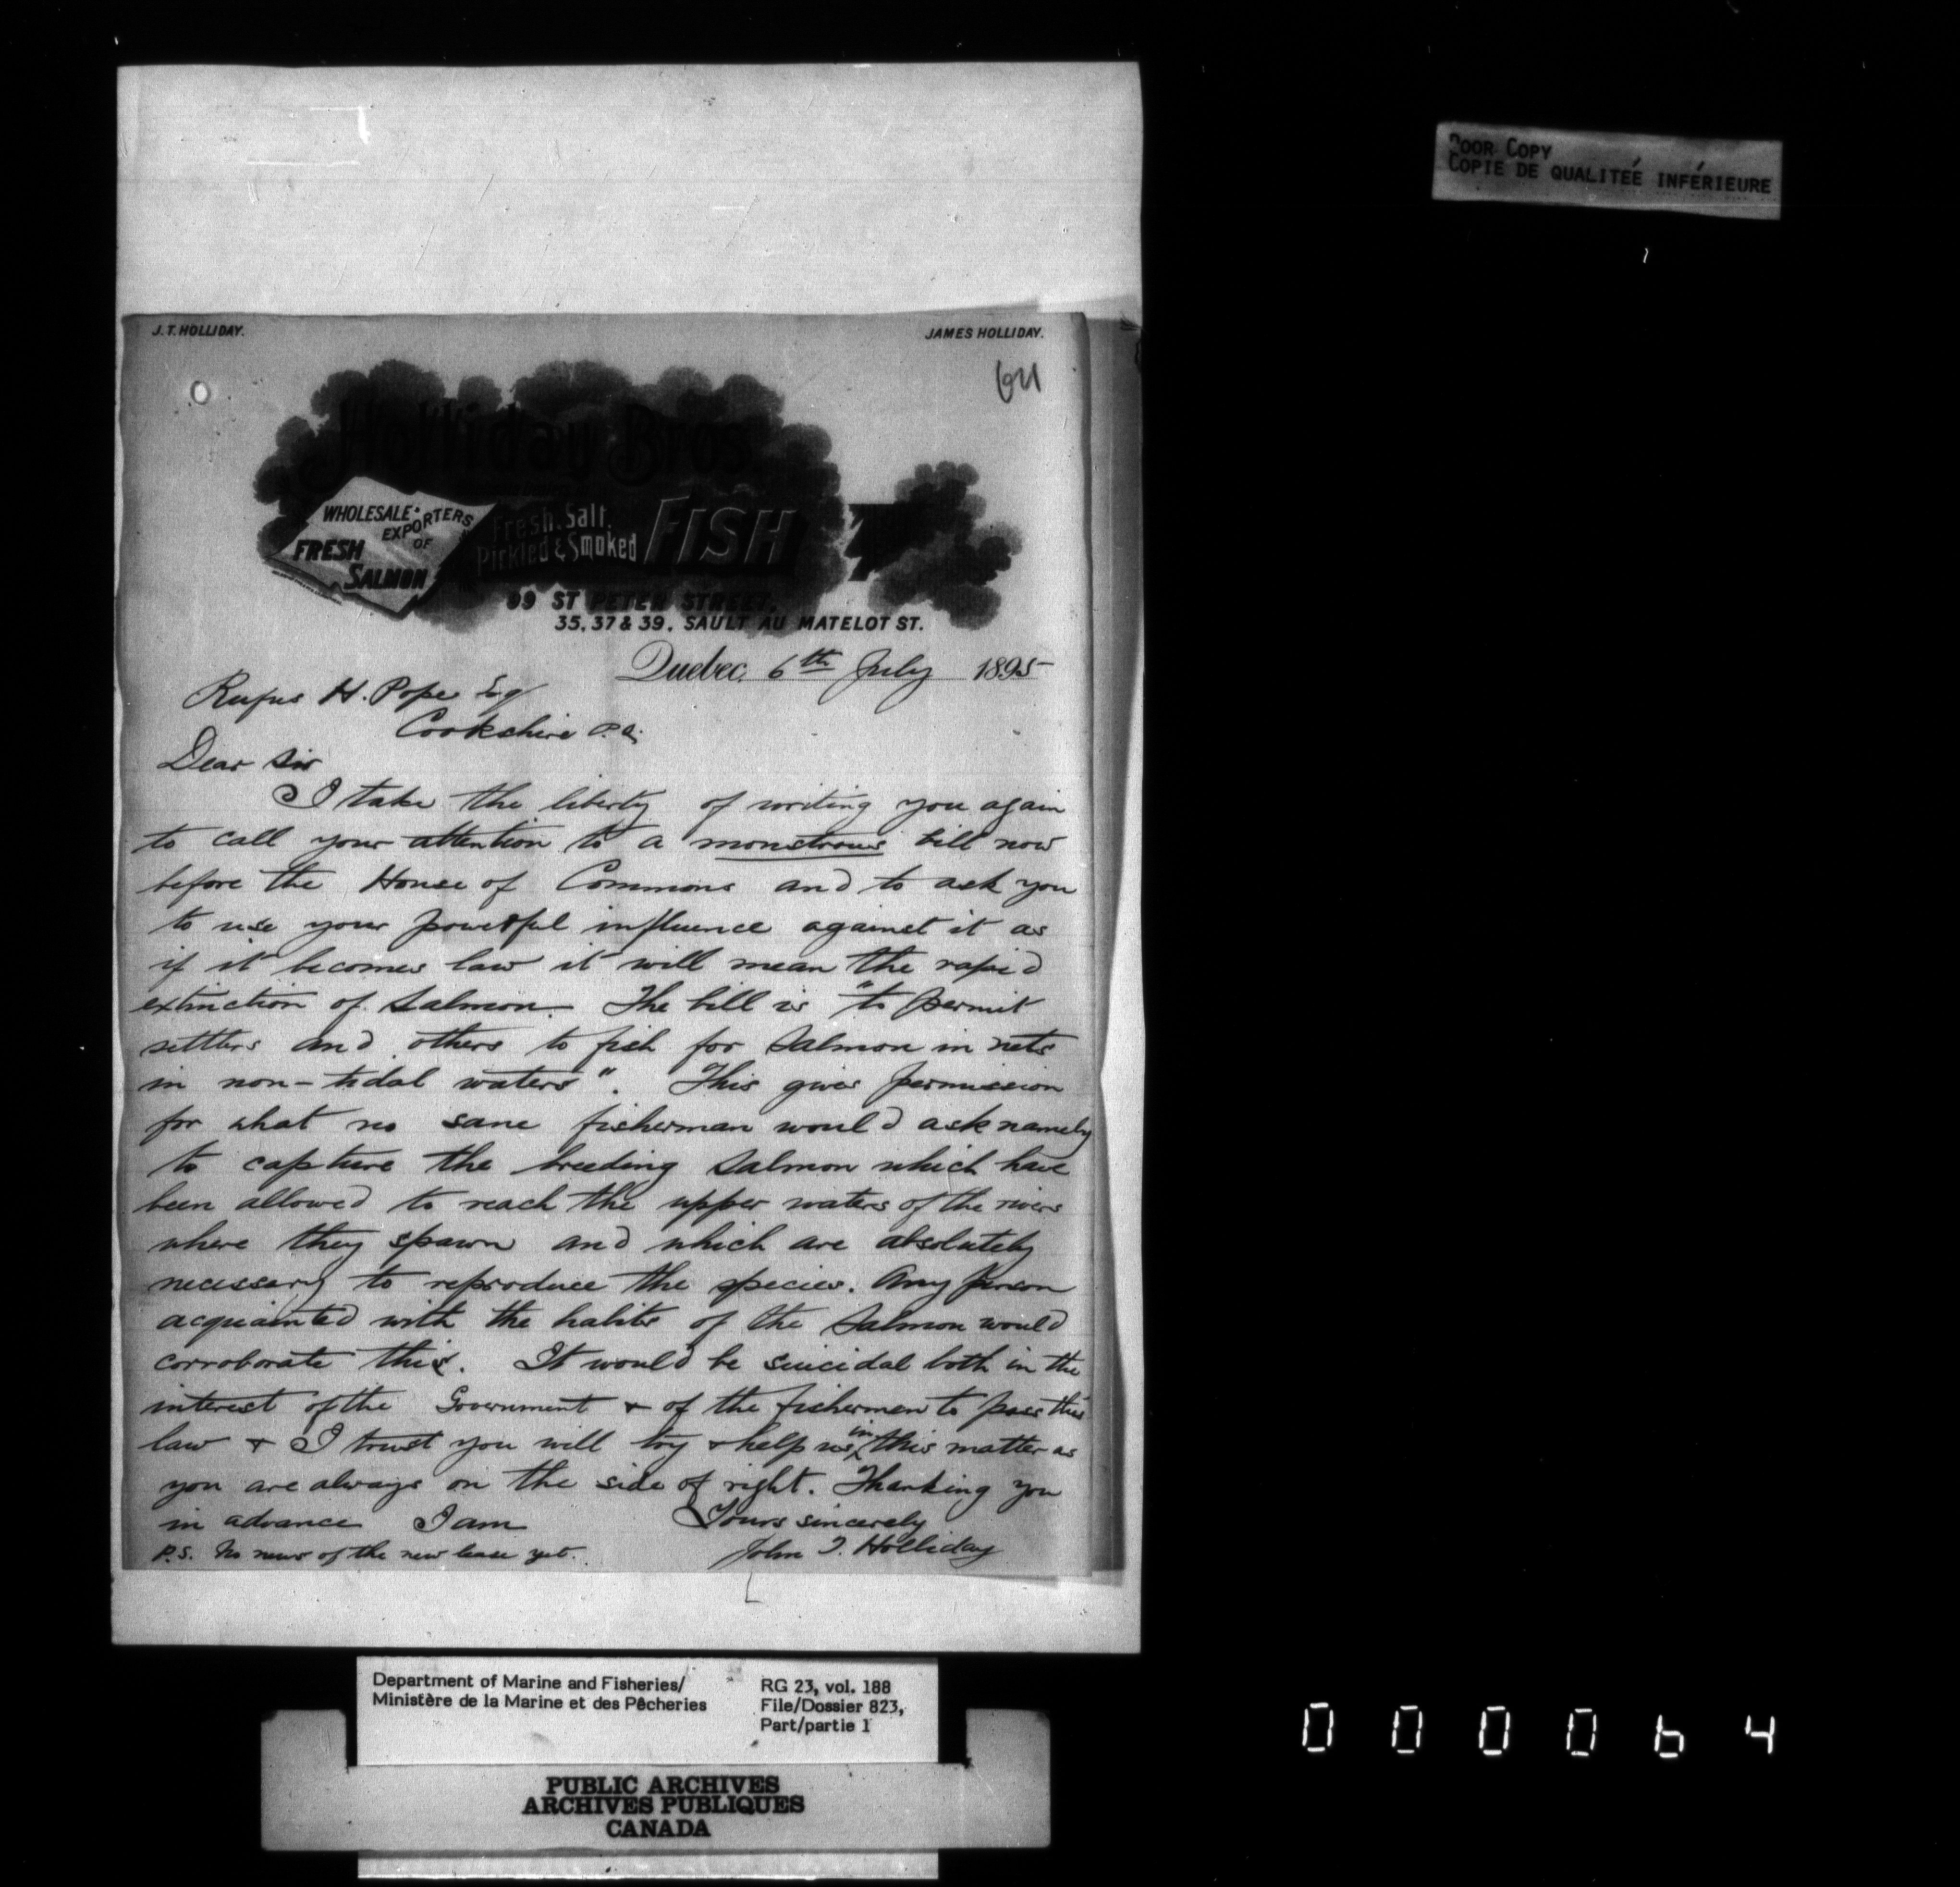 POOR COPY
COPIE DE QUALITEÉ INFÉRIEURE
J. T. HOLLIDAY.
JAMES HOLLIDAY.
64
Holliday Bros.
WHOLESALE EXPORTERS OF
FRESH SALMON
Fresh, Salt,
Pickled & Smoked FISH
99 ST PETER STREET,
35, 37 & 39, SAULT AU MATELOT ST.
Quebec, 6th July 1895
Rufus H. Pope Esq
Cookshire P.Q.
Dear Sir
I take the liberty of writing you again
to call your attention to a monstrous bill now
before the House of Commons and to ask you
to use your powerful influence against it as
if it becomes law it will mean the rapid
extinction of Salmon. The bill is "to permit
settlers and others to fish for Salmon in nets
in non-tidal waters". This gives permission
for what no sane fisherman would ask namely
to capture the breeding Salmon which have
been allowed to reach the upper waters of the rivers
where they spawn and which are absolutely
necessary to reproduce the species. Any person
acquainted with the habits of the Salmon would
corroborate this. It would be suicidal both in the
interest of the Government & of the fishermen to pass this
law & I trust you will try & help us in this matter as
you are always on the side of right. Thanking you
in advance I am Yours sincerely
P.S. No news of the new lease yet. John T. Holliday
Department of Marine and Fisheries/
Ministère de la Marine et des Pêcheries
RG 23, vol. 188
File/Dossier 823,
Part/partie 1
PUBLIC ARCHIVES
ARCHIVES PUBLIQUES
CANADA
000064